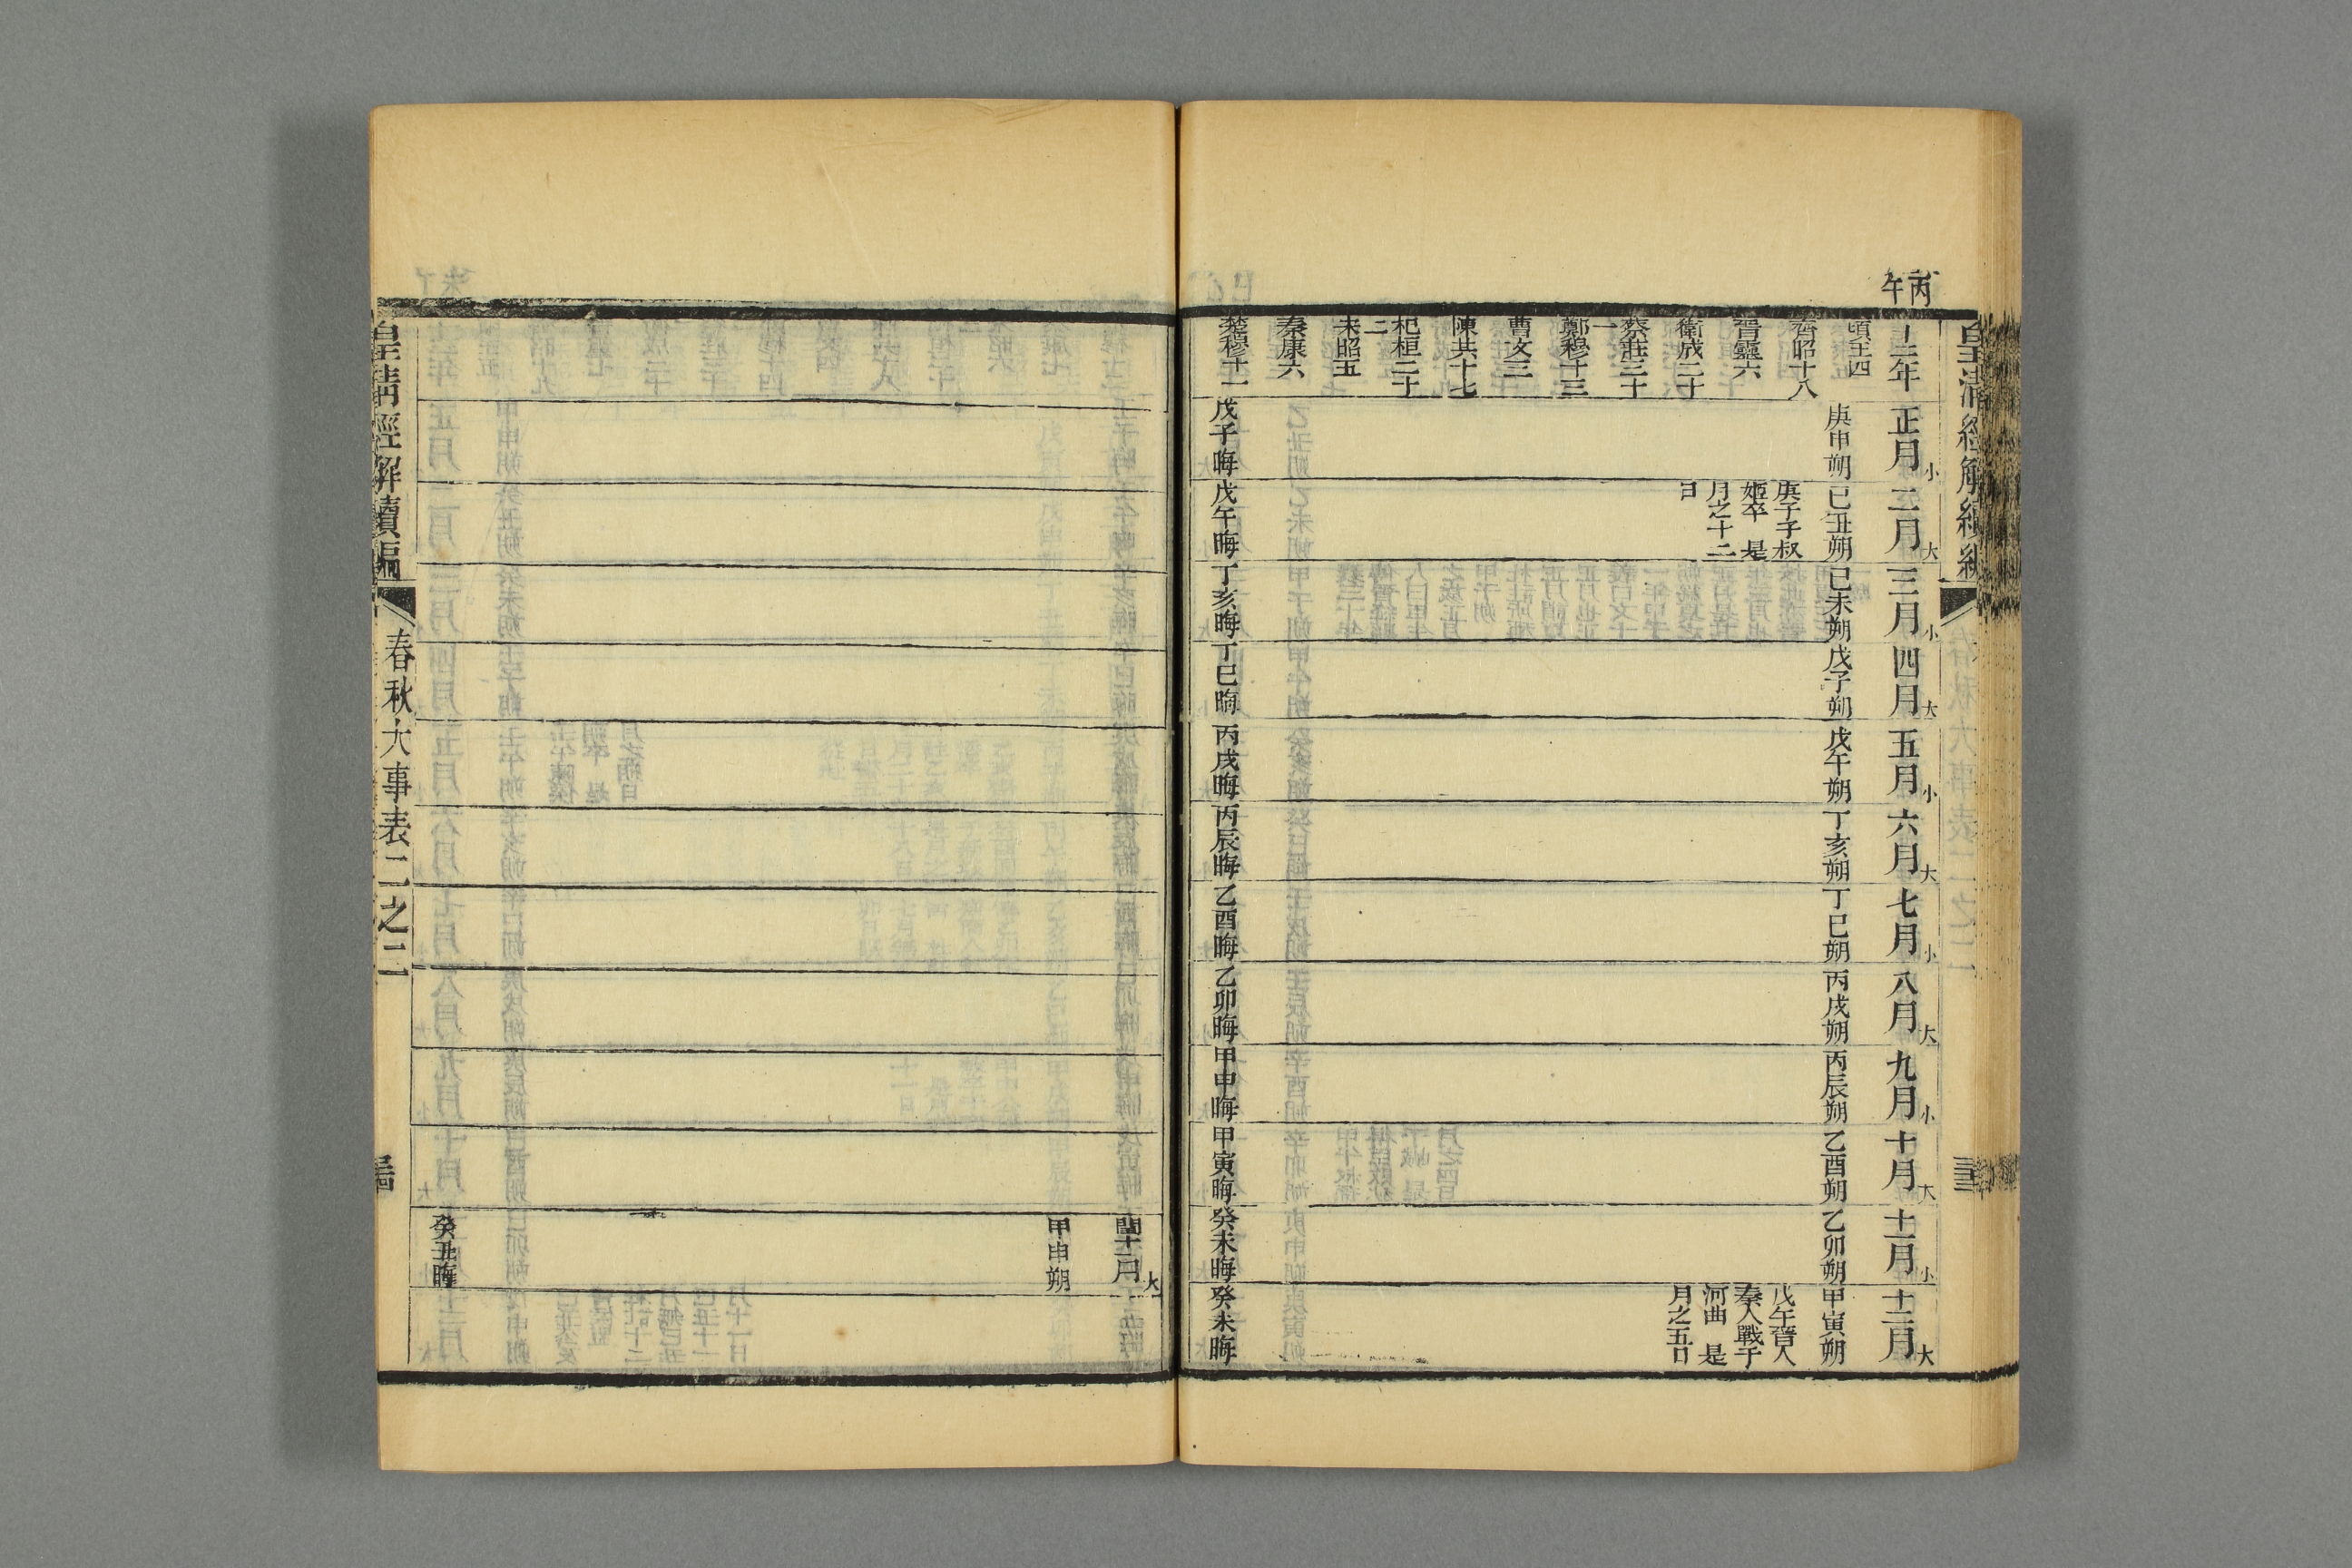 丙午
十二年
頃王四
齊昭十八
晉靈六
衛成二十
蔡莊三十一
鄭穆十三
曹文三
陳共十七
杞桓二十二
宋昭五
秦康六
楚穆十一
正月小
庚申朔
戊子晦
二月大
己丑朔
庚子子叔
姬卒 是
月之十二
日
戊午晦
三月小
己未朔
丁亥晦
四月大
戊子朔
丁巳晦
五月小
戊午朔
丙戌晦
六月大
丁亥朔
丙辰晦
七月小
丁巳朔
乙酉晦
八月大
丙戌朔
乙卯晦
九月小
丙辰朔
甲申晦
十月大
乙酉朔
甲寅晦
十一月小
乙卯朔
癸未晦
十二月大
甲寅朔
戊午晉人
秦人戰于
河曲 是
月之五日
癸未晦
閏十一月大
甲申朔
癸丑晦
皇清經解續編
春秋大事表二之二